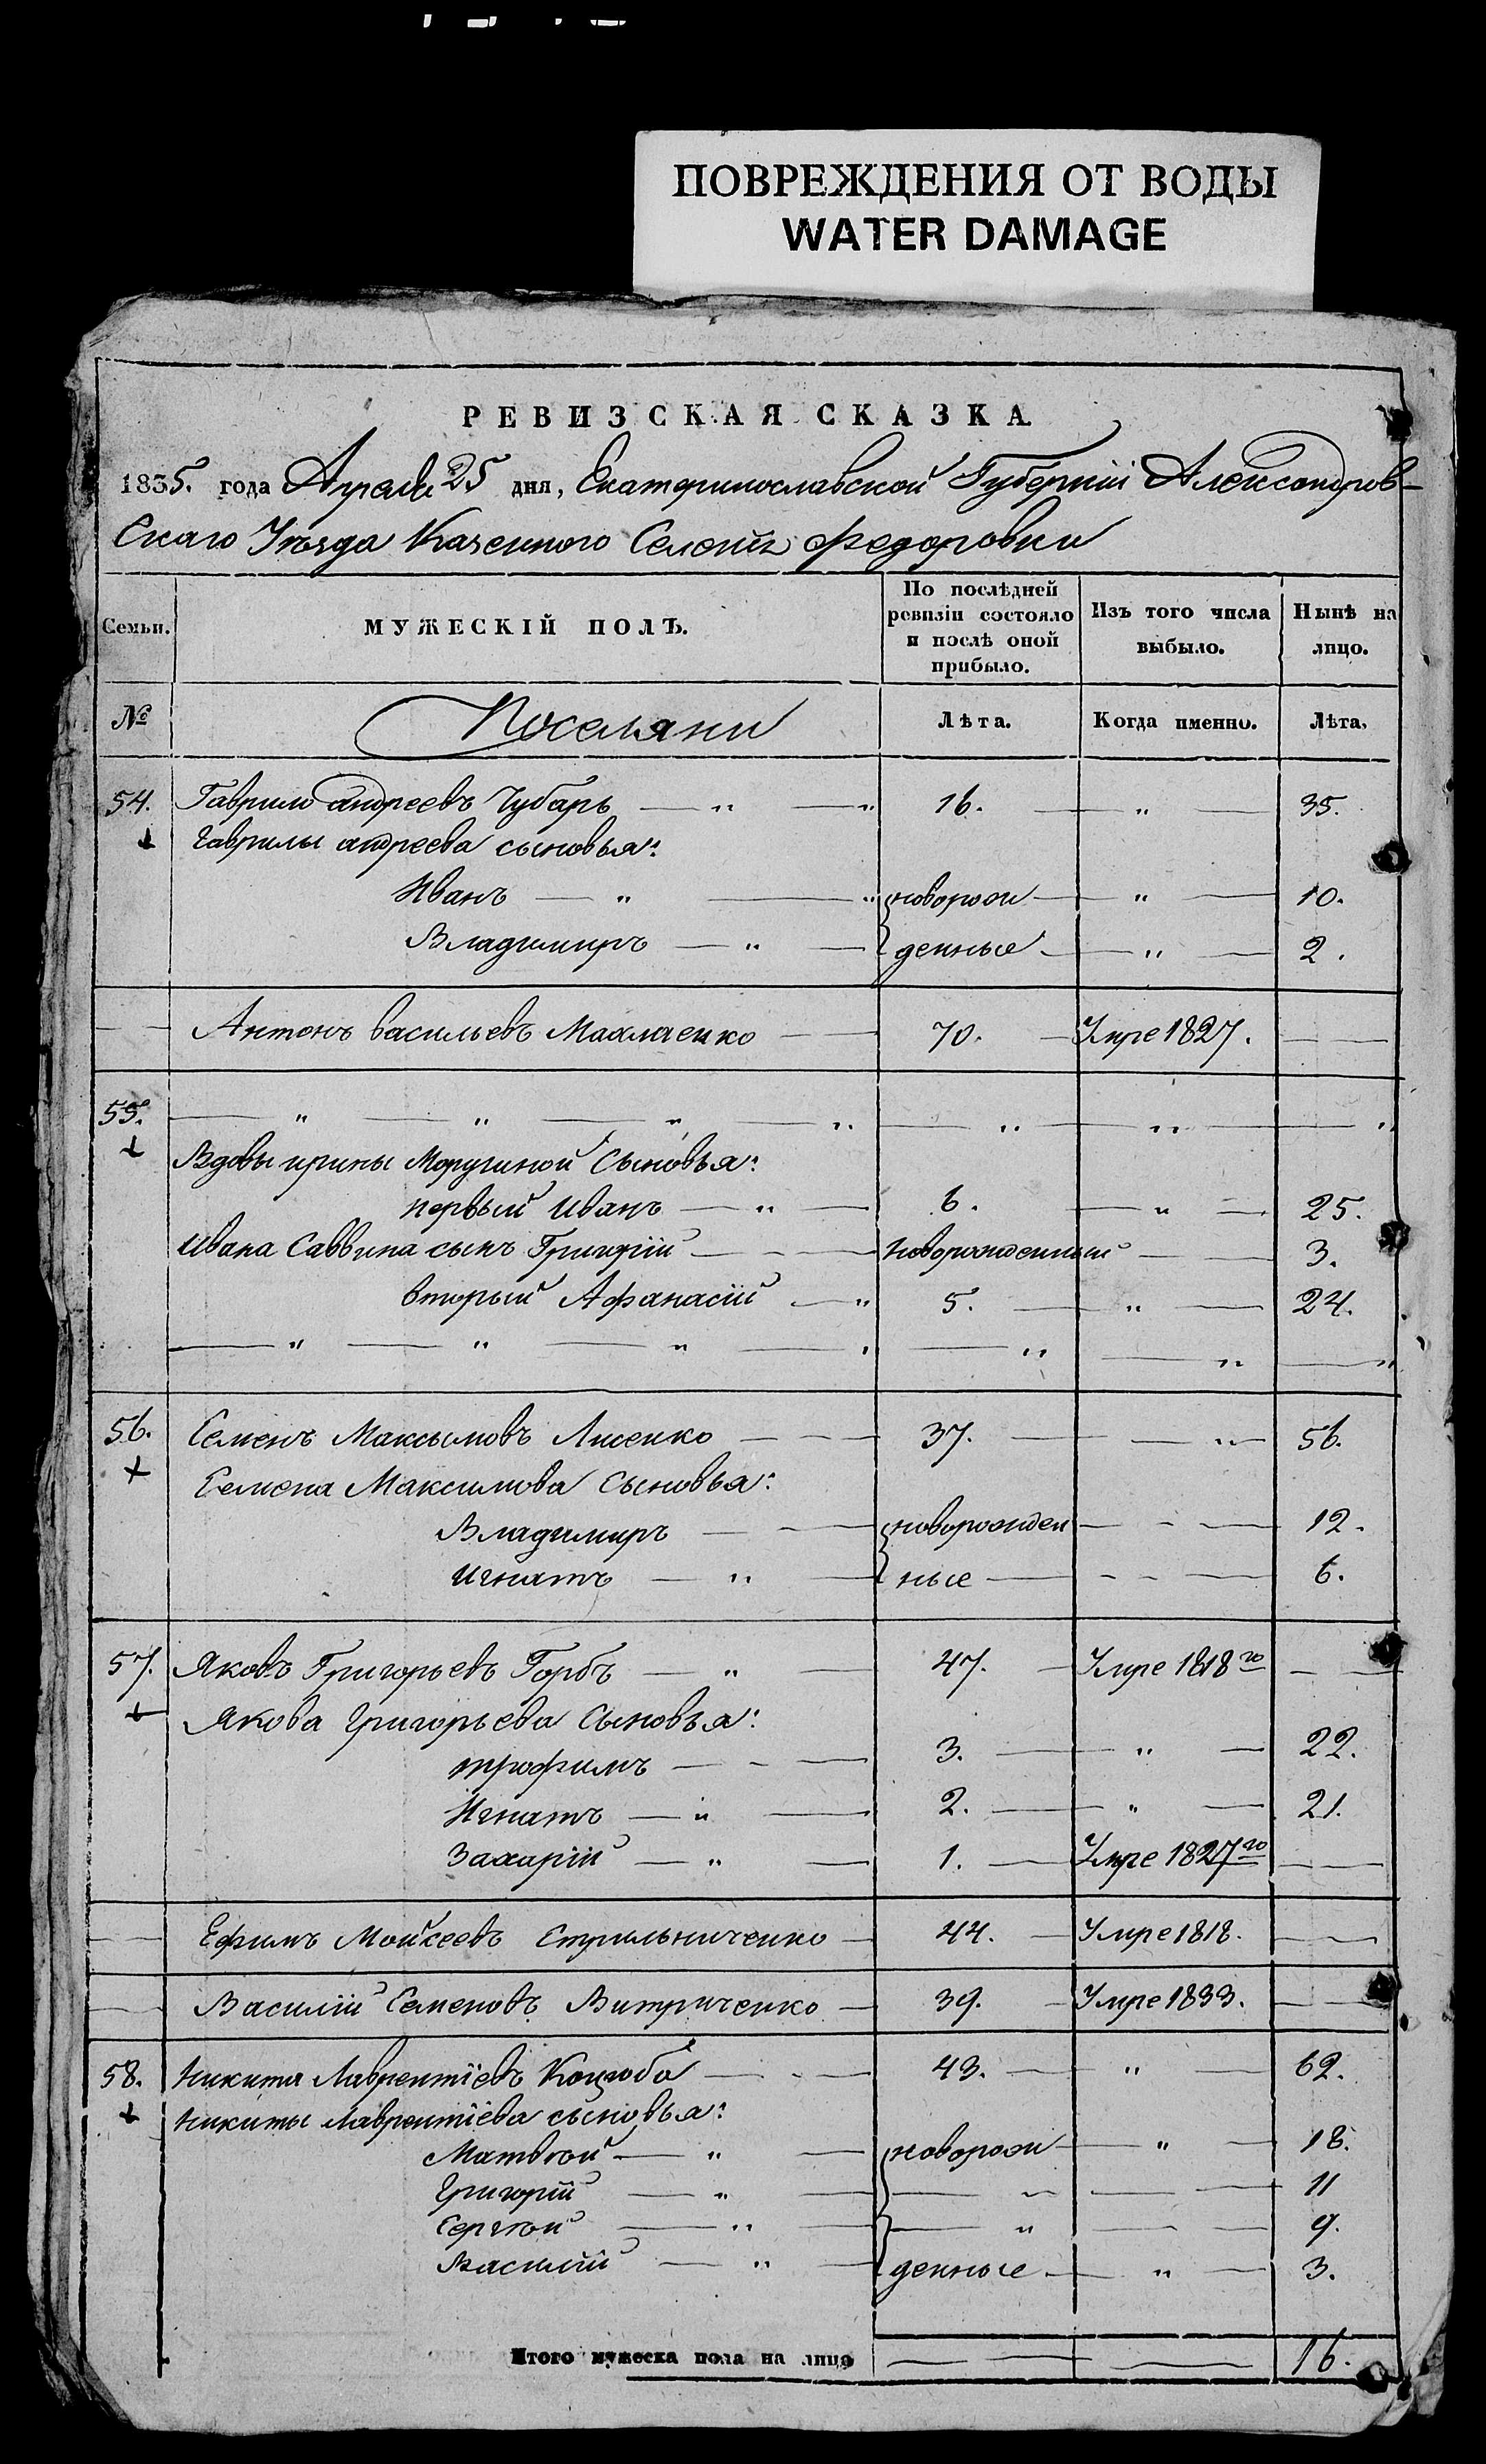 ПОВРЕЖДЕНИЯ ОТ ВОДЫ
WATER DAMAGE
РЕВИЗСКАЯ СКАЗКА
1835. года Апреля 25 дня, Екатеринославской Губернiи Александров-
скаго Уѣзда Казенного Селенiя Федоровки
Семьи. МУЖЕСКІЙ ПОЛЪ. По послѣдней ревизіи состояло и послѣ оной прибыло. Изъ того числа выбыло. Нынѣ на лицо.
№ Поселяни Лѣта. Когда именно. Лѣта.
54. Гаврило андреевъ Чубарь — „ — „ 16. — „ — 35.
гаврилы андреева сыновья:
Иванъ — „ — „ новорож — „ — 10.
Владимиръ — „ — денные — „ — 2.
— Антонъ васильевъ Махлаенко — 70. — Умре 1827. — —
55. — „ — „ — „ — „ — „ — „ — „
Вдовы ирины Моругиной Сыновья:
первый иванъ — „ — 6. — „ — 25.
ивана Саввина сынъ Григорiй — - — Новорожденный — — 3.
вторый Афанасiй — „ 5. — „ — 24.
— „ — „ — „ — „ — „ — „ — „
56. Семенъ Максымовъ Лисенко — - — 37. — — „ — 56.
Семена Максимова Сыновья:
Владимиръ — - — новорожден — - — 12.
игнатъ — „ — ные — - - — 6.
57. Яковъ Григорьевъ Горбъ — „ — 47. — Умре 1818го — —
Якова Григорьева Сыновья:
трофимъ — - — 3. — „ — 22.
Игнатъ — „ — 2. — „ — 21.
Захарiй — „ — 1. — Умре 1827го — —
— Ефимъ Мойсеевъ Стрильниченко — 44. — Умре 1818. — —
— Василiй Семеновъ Витриченко — 39. — Умре 1833. — —
58. Никита Лаврентiевъ Коцюба — - — 43. — „ — 62.
Никиты Лаврентiева сыновья:
Матвѣй — „ — новорож — „ — 18.
Григорiй — „ — — „ — — 11
Сергѣй — „ — — „ — — 9.
Василiй — „ — денные — „ — 3.
Итого мужеска пола на лицо — — — — 16.